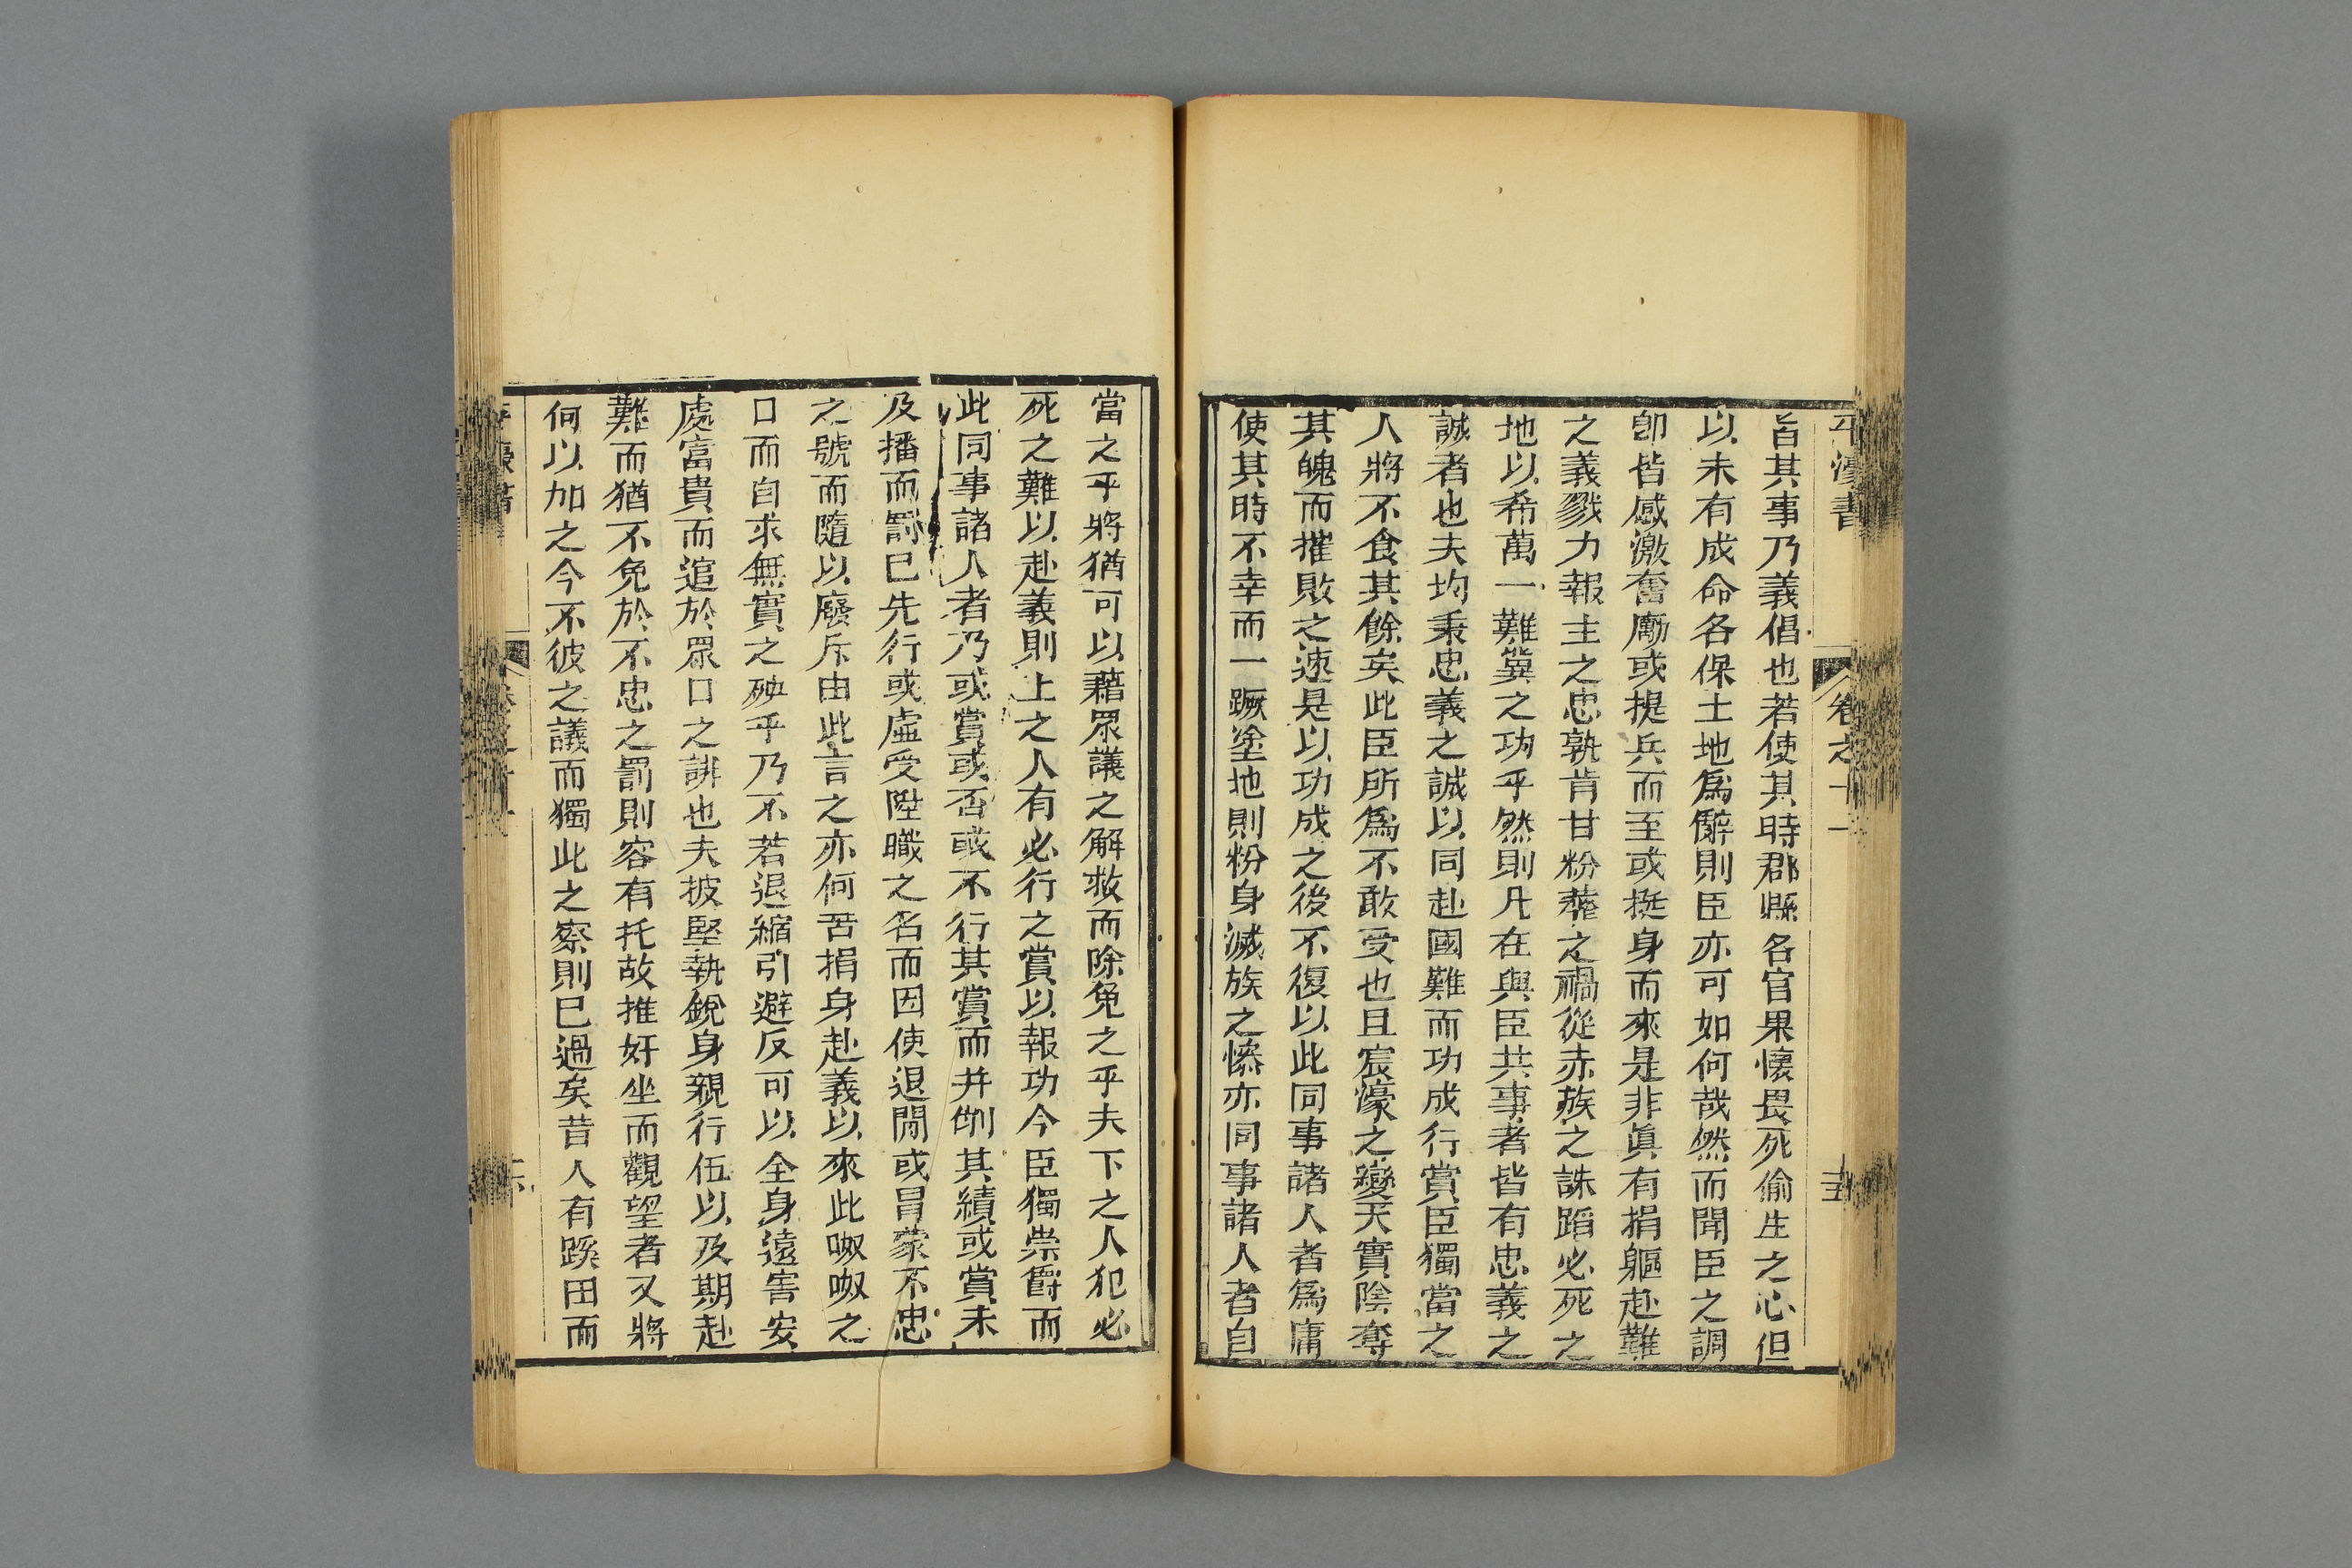 平濠書 卷之十一 十五
旨其事乃義倡也若使其時郡縣各官果懷畏死偷生之心但
以未有成命各保土地爲辭則臣亦可如何哉然而聞臣之調
卽皆感激奮勵或提兵而至或挺身而來是非眞有捐軀赴難
之義戮力報主之忠孰肯甘粉虀之禍從赤族之誅蹈必死之
地以希萬一難冀之功乎然則凡在與臣共事者皆有忠義之
誠者也夫均秉忠義之誠以同赴國難而功成行賞臣獨當之
人將不食其餘矣此臣所爲不敢受也且宸濠之變天實陰奪
其魄而摧敗之速是以功成之後不復以此同事諸人者爲庸
使其時不幸而一蹶塗地則粉身滅族之慘亦同事諸人者自
當之乎將猶可以藉眾議之解救而除免之乎夫下之人犯必
死之難以赴義則上之人有必行之賞以報功今臣獨崇爵而
此同事諸人者乃或賞或否或不行其賞而并削其績或賞未
及播而罰已先行或虛受陞職之名而因使退閒或冒蒙不忠
之號而隨以廢斥由此言之亦何苦捐身赴義以來此呶呶之
口而自求無實之殃乎乃不若退縮引避反可以全身遠害安
處富貴而逭於眾口之誹也夫披堅執銳身親行伍以及期赴
難而猶不免於不忠之罰則容有托故推奸坐而觀望者又將
何以加之今不彼之議而獨此之察則已過矣昔人有蹊田而